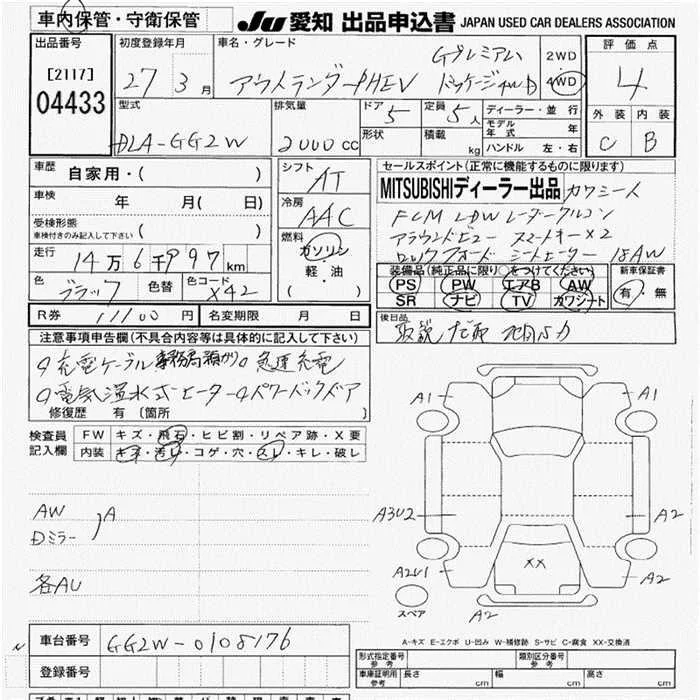 車内保管・守衛保管
JU 愛知 出品申込書 JAPAN USED CAR DEALERS ASSOCIATION
出品番号 初度登録年月 車名・グレード 評価点
[2117]
04433
27 3月
アウトランダーPHEV
Gプレミアム
2WD
4WD
4
型式 排気量 ドア 5 定員 5人 ディーラー・並行 外装 内装
モデル年式
DLA-GG2W 2000cc 形状 積載 kg ハンドル 左・右 C B
車歴 自家用・( ) シフト AT セールスポイント(正常に機能するものに限ります)
車検 年 月( 日) 冷房 AAC MITSUBISHIディーラー出品 カワシート
受検形態 ( )
車検付きのみ記入して下さい
FCM LDW レーダークルコン
燃料 ガソリン アラウンドビュー スマートキー×2
走行 14万6千997km 軽・油 ロックフォード シートヒーター 18AW
( )
色 ブラック 色替 色コード X42
装備品(純正品に限り○をつけてください) 新車保証書
PS PW エアB AW 有・無
SR ナビ TV カワシート
R券 11100円 名変期限 月 日
後日品
注意事項申告欄(不具合内容等は具体的に記入して下さい)
充電ケーブル 急速充電
電気温水式ヒーター パワーバックドア
修復歴 有 [箇所
検査員記入欄 FW キズ・飛石・ヒビ割・リペア跡・X要
内装 キズ・汚レ・コゲ・穴・スレ・キレ・破レ
A1 A1
AW
Dミラー
A
A3U2 A2
XX
各AU
A2U1 A2
スペア
A2
A-キズ E-エクボ U-凹み W-補修跡 S-サビ C-腐食 XX-交換済
車台番号 GG2W-0108176
登録番号
形式指定番号 参考 類別区分番号 参考
車庫証明用 参考 長さ cm 幅 cm 高さ cm